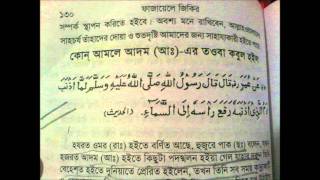 ১৩০ ফাজায়েলে জিকির
সম্পর্ক স্থাপন করিতে হইবে। অবশ্য মনে রাখিবেন,
সাহচর্য তাঁহাদের দোয়া ও শুভদৃষ্টি আমাদের জন্য সাহায্যকারী হইতে
কোন্ আমলে আদম (আঃ)-এর তওবা কবুল হইল
قَالَ قَالَ رَسُوْلُ اللهِ صَلَّى اللهُ عَلَيْهِ وَسَلَّمَ لَمَّا اَذْنَبَ
الَّذِىْ اَذْنَبَهٗ رَفَعَ رَأْسَهٗ اِلَى السَّمَاءِ (الحديث)
হযরত ওমর (রাঃ) হইতে বর্ণিত আছে, হুজুরে পাক (ছঃ)
হজরত আদম (আঃ) হইতে কিছুটা পদস্খলন হইয়া গেল
হইতে দুনিয়াতে প্রেরিত হইলেন, তখন তিনি সব সময়